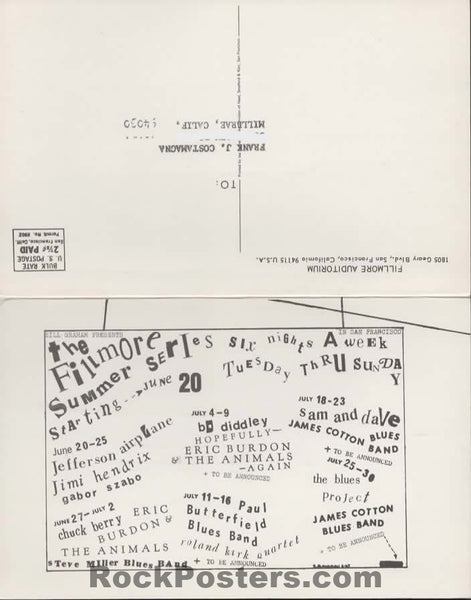 FILLMORE AUDITORIUM
1805 Geary Blvd., San Francisco, California 94115 U.S.A.
BULK RATE
U. S. POSTAGE
2½¢ PAID
San Francisco, Calif.
Permit No. 8902
TO:
FRANK J. COSTAMAGNA
MILLBRAE, CALIF.
94030
BILL GRAHAM PRESENTS
IN SAN FRANCISCO
the Fillmore
Summer SERIes
Starting---> JUNE 20
SIx nigHts A wEEK
TuESDay THRU SUNDAY
June 20-25
Jefferson airplane
Jimi hendrix
gabor szabo
JUNE 27- JULY 2
chuck berry ERIC
BURDON &
THE ANIMALS
sTeve Miller Blues BaNd
JULY 4-9
bo diddley
HOPEFULLY—
ERIC BURDON
& THE ANIMALS
—AGAIN
+ TO BE ANNOUNCED
JULY 11-16 Paul
Butterfield
Blues Band
roland kirk quartet
JULY 18-23
sam and daVe
JAMES COTTON BLUES
BAND
+ TO BE ANNOUNCED
JULY 25-30
the blues
Project
JAMES COTTON
BLUES BAND
+ TO BE ANNOUNCED
RockPosters.com